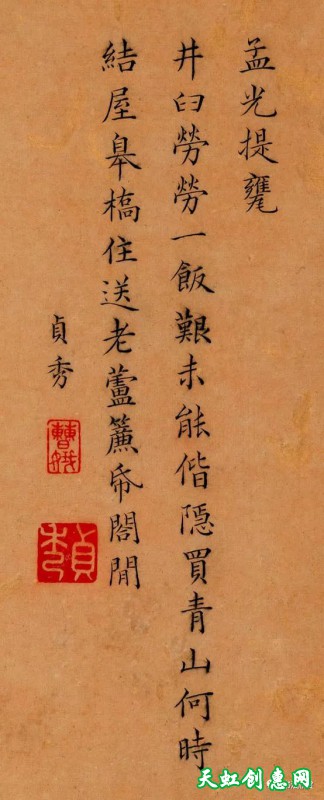 孟光提甕
井臼勞勞一飯艱未能偕隱買青山何時
結屋皋橋住送老蘆簾帋閣閒
貞秀
曹娥
貞秀
天虹创惠网